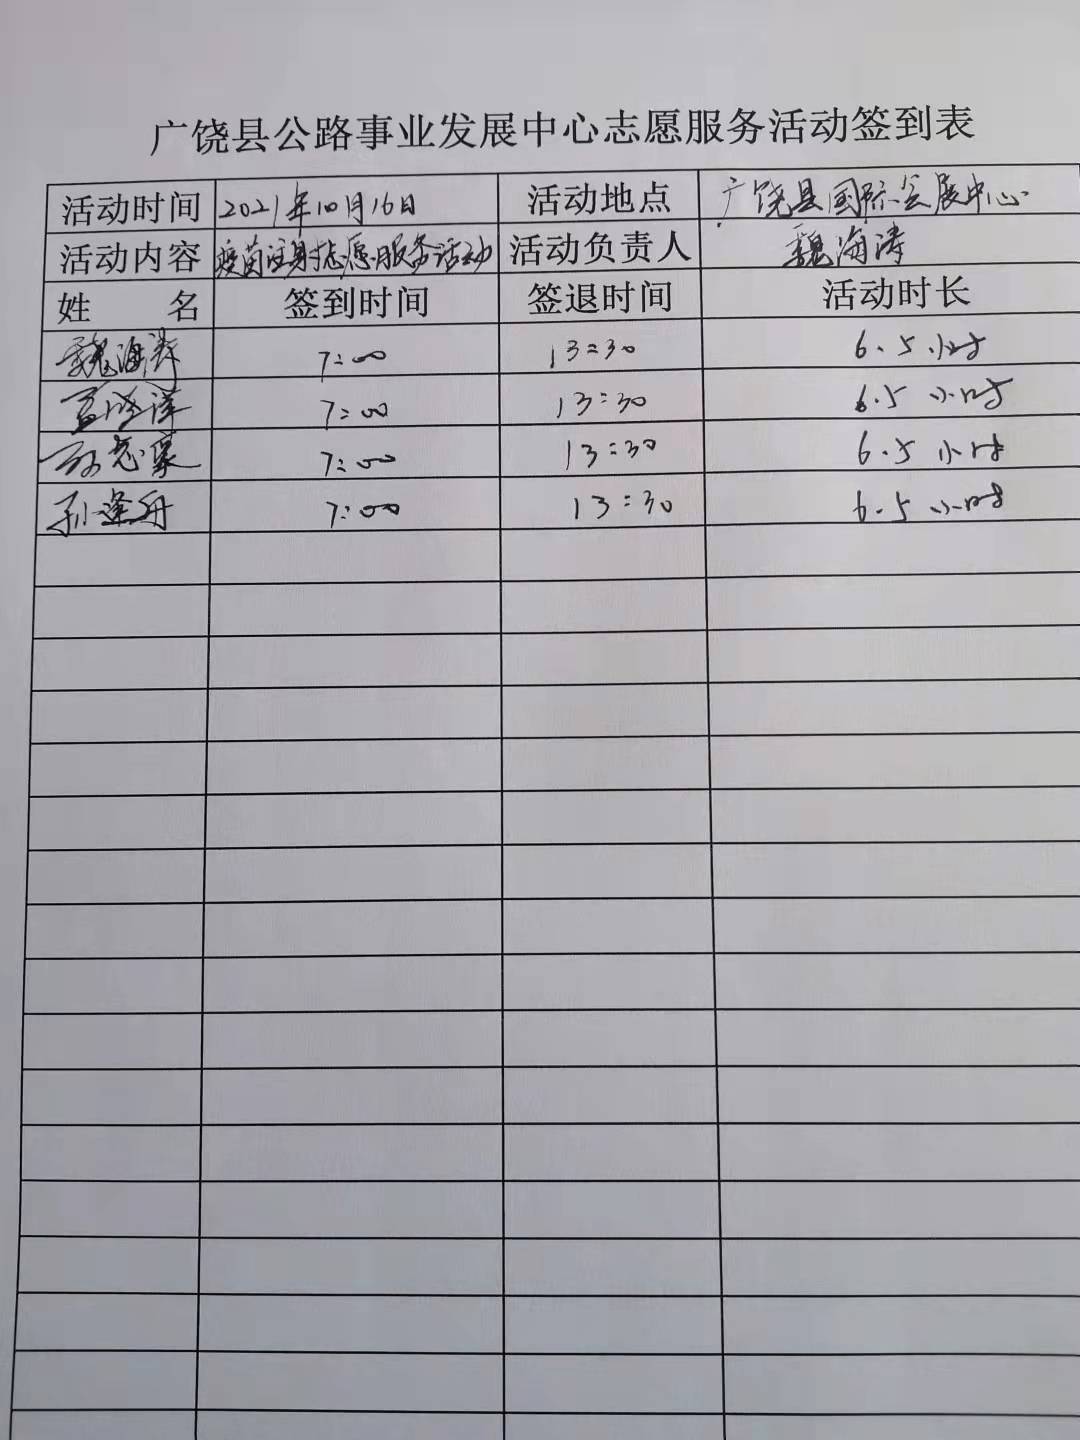 广饶县公路事业发展中心志愿服务活动签到表
活动时间 2021年10月16日 活动地点 广饶县国际会展中心
活动内容 疫苗注射志愿服务活动 活动负责人 魏海涛
姓 名 签到时间 签退时间 活动时长
魏海涛 7:00 13:30 6.5小时
7:00 13:30 6.5小时
7:00 13:30 6.5小时
孙逢舟 7:00 13:30 6.5小时